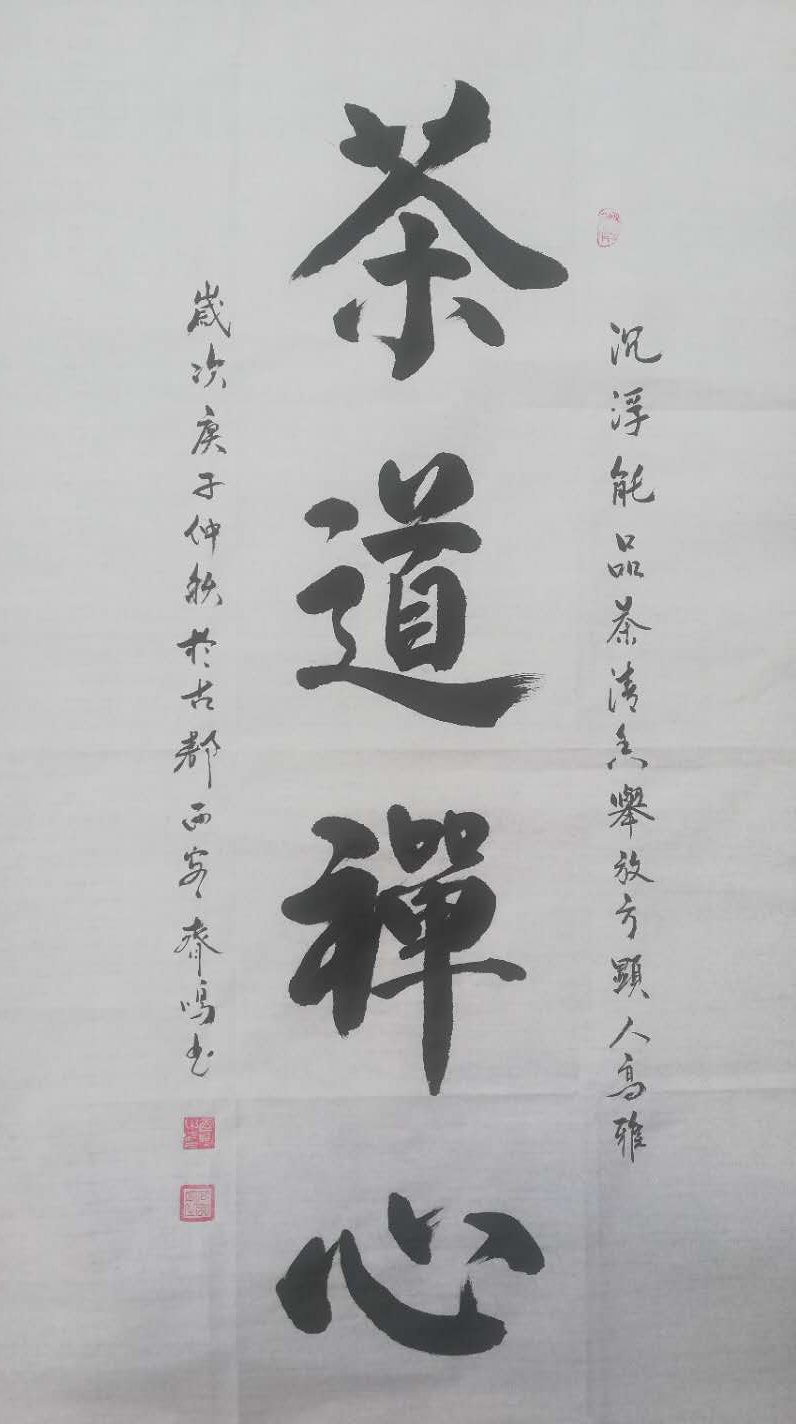 沉浮能品茶清香舉放方顯人高雅
茶道禪心
歲次庚子仲秋於古都西安齊鳴书